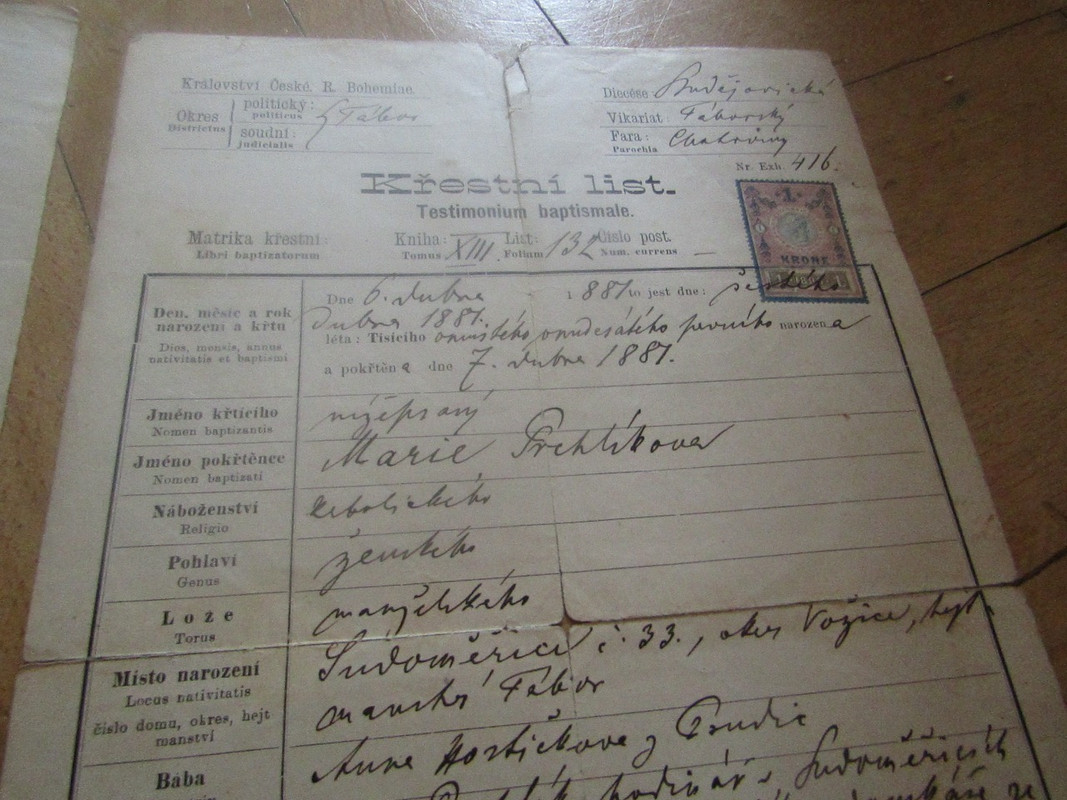 Království České. R. Bohemiae.
Okres
Districtus
politický:
politicus
soudní:
judicialis
Tábor
Diecése Budějovická
Vikariát: Táborský
Fara: Chotoviny
Parochia
Nr. Exh. 416.
Křestní list.
Testimonium baptismale.
Matrika křestní:
Libri baptizatorum
Kniha: XIII. List: 132 Číslo post. —
Tomus Folium Num. currens
1
KRONE
Den, měsíc a rok
narození a křtu
Dies, mensis, annus
nativitatis et baptismi
Dne 6. dubna 1881 to jest dne: šestého
dubna 1881.
léta: Tisícího osmistého osmdesátého prvního narozena
a pokřtěna dne 7. dubna 1881.
Jméno křtícího
Nomen baptizantis
nížepsaný
Jméno pokřtěnce
Nomen baptizati
Marie Prchlíkova
Náboženství
Religio
katolického
Pohlaví
Genus
ženského
Lože
Torus
manželského
Místo narození
Locus nativitatis
číslo domu, okres, hejt
manství
Sudoměřice č. 33., okres Vožice, hejt
manství Tábor
Bába
Anna
hodinář v Sudoměřicích